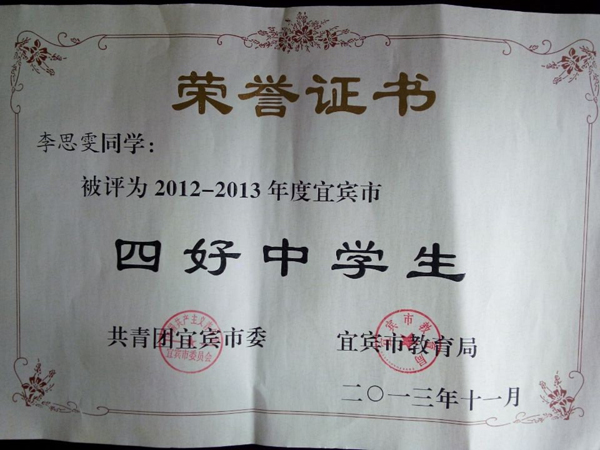 荣誉证书
李思雯同学：
被评为2012-2013年度宜宾市
四好中学生
共青团宜宾市委 宜宾市教育局
二〇一三年十一月